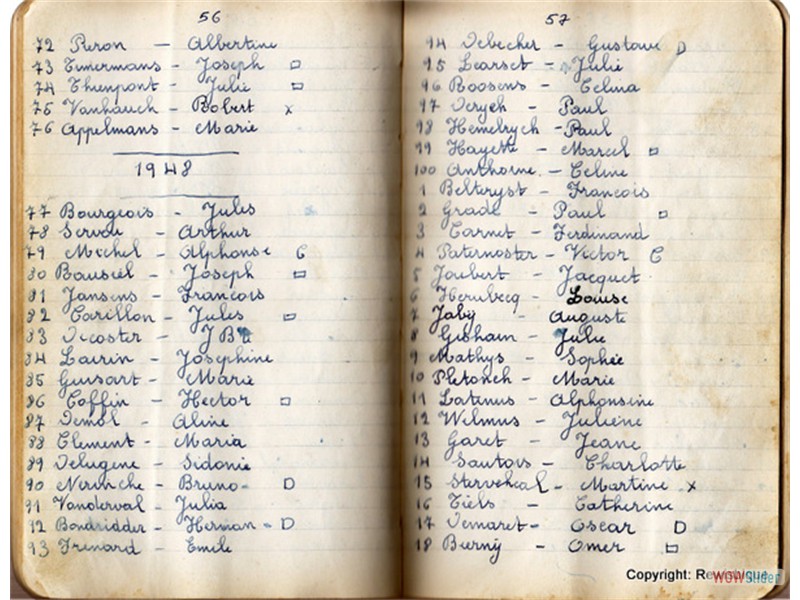 56
72 Puron - Albertine
73 Timermans - Joseph □
74 Thienpont - Julie □
75 Vanhauch - Robert x
76 Appelmans - Marie
1948
77 Bourgeois - Jules
78 Servais - Arthur
79 Michel - Alphonse C
80 Bausiel - Joseph □
81 Jansens - Francois
82 Carillon - Jules □
83 Decoster - JBte
84 Laurin - Josephine
85 Guisart - Marie
86 Coffin - Hector □
87 Demol - Aline
88 Clement - Maria
89 Delugene - Sidonie
90 Nerinche - Bruno - D
91 Vanderval - Julia
92 Bondridder - Herman - D
93 Frenard - Emile
57
94 Debecker - Gustave D
95 Learset - Julie
96 Boosens - Celina
97 Deryck - Paul
98 Hemelrych - Paul
99 Hayette - Marcel □
100 Anthoine - Celine
1 Belteryst - Francois
2 Grade - Paul □
3 Carnet - Ferdinand
4 Paternoster - Victor C
5 Joubert - Jacquet
6 Hernbecq - Louise
7 Jaby - Auguste
8 Gisham - Julie
9 Mathys - Sophie
10 Pletonch - Marie
11 Latinus - Alphonsine
12 Wilmus - Julienne
13 Garet - Jeane
14 Sautois - Charlotte
15 - Martine x
16 Tiels - Catherine
17 Demaret - Oscar D
18 Bierny - Omer □
Copyright:
WOWSlider